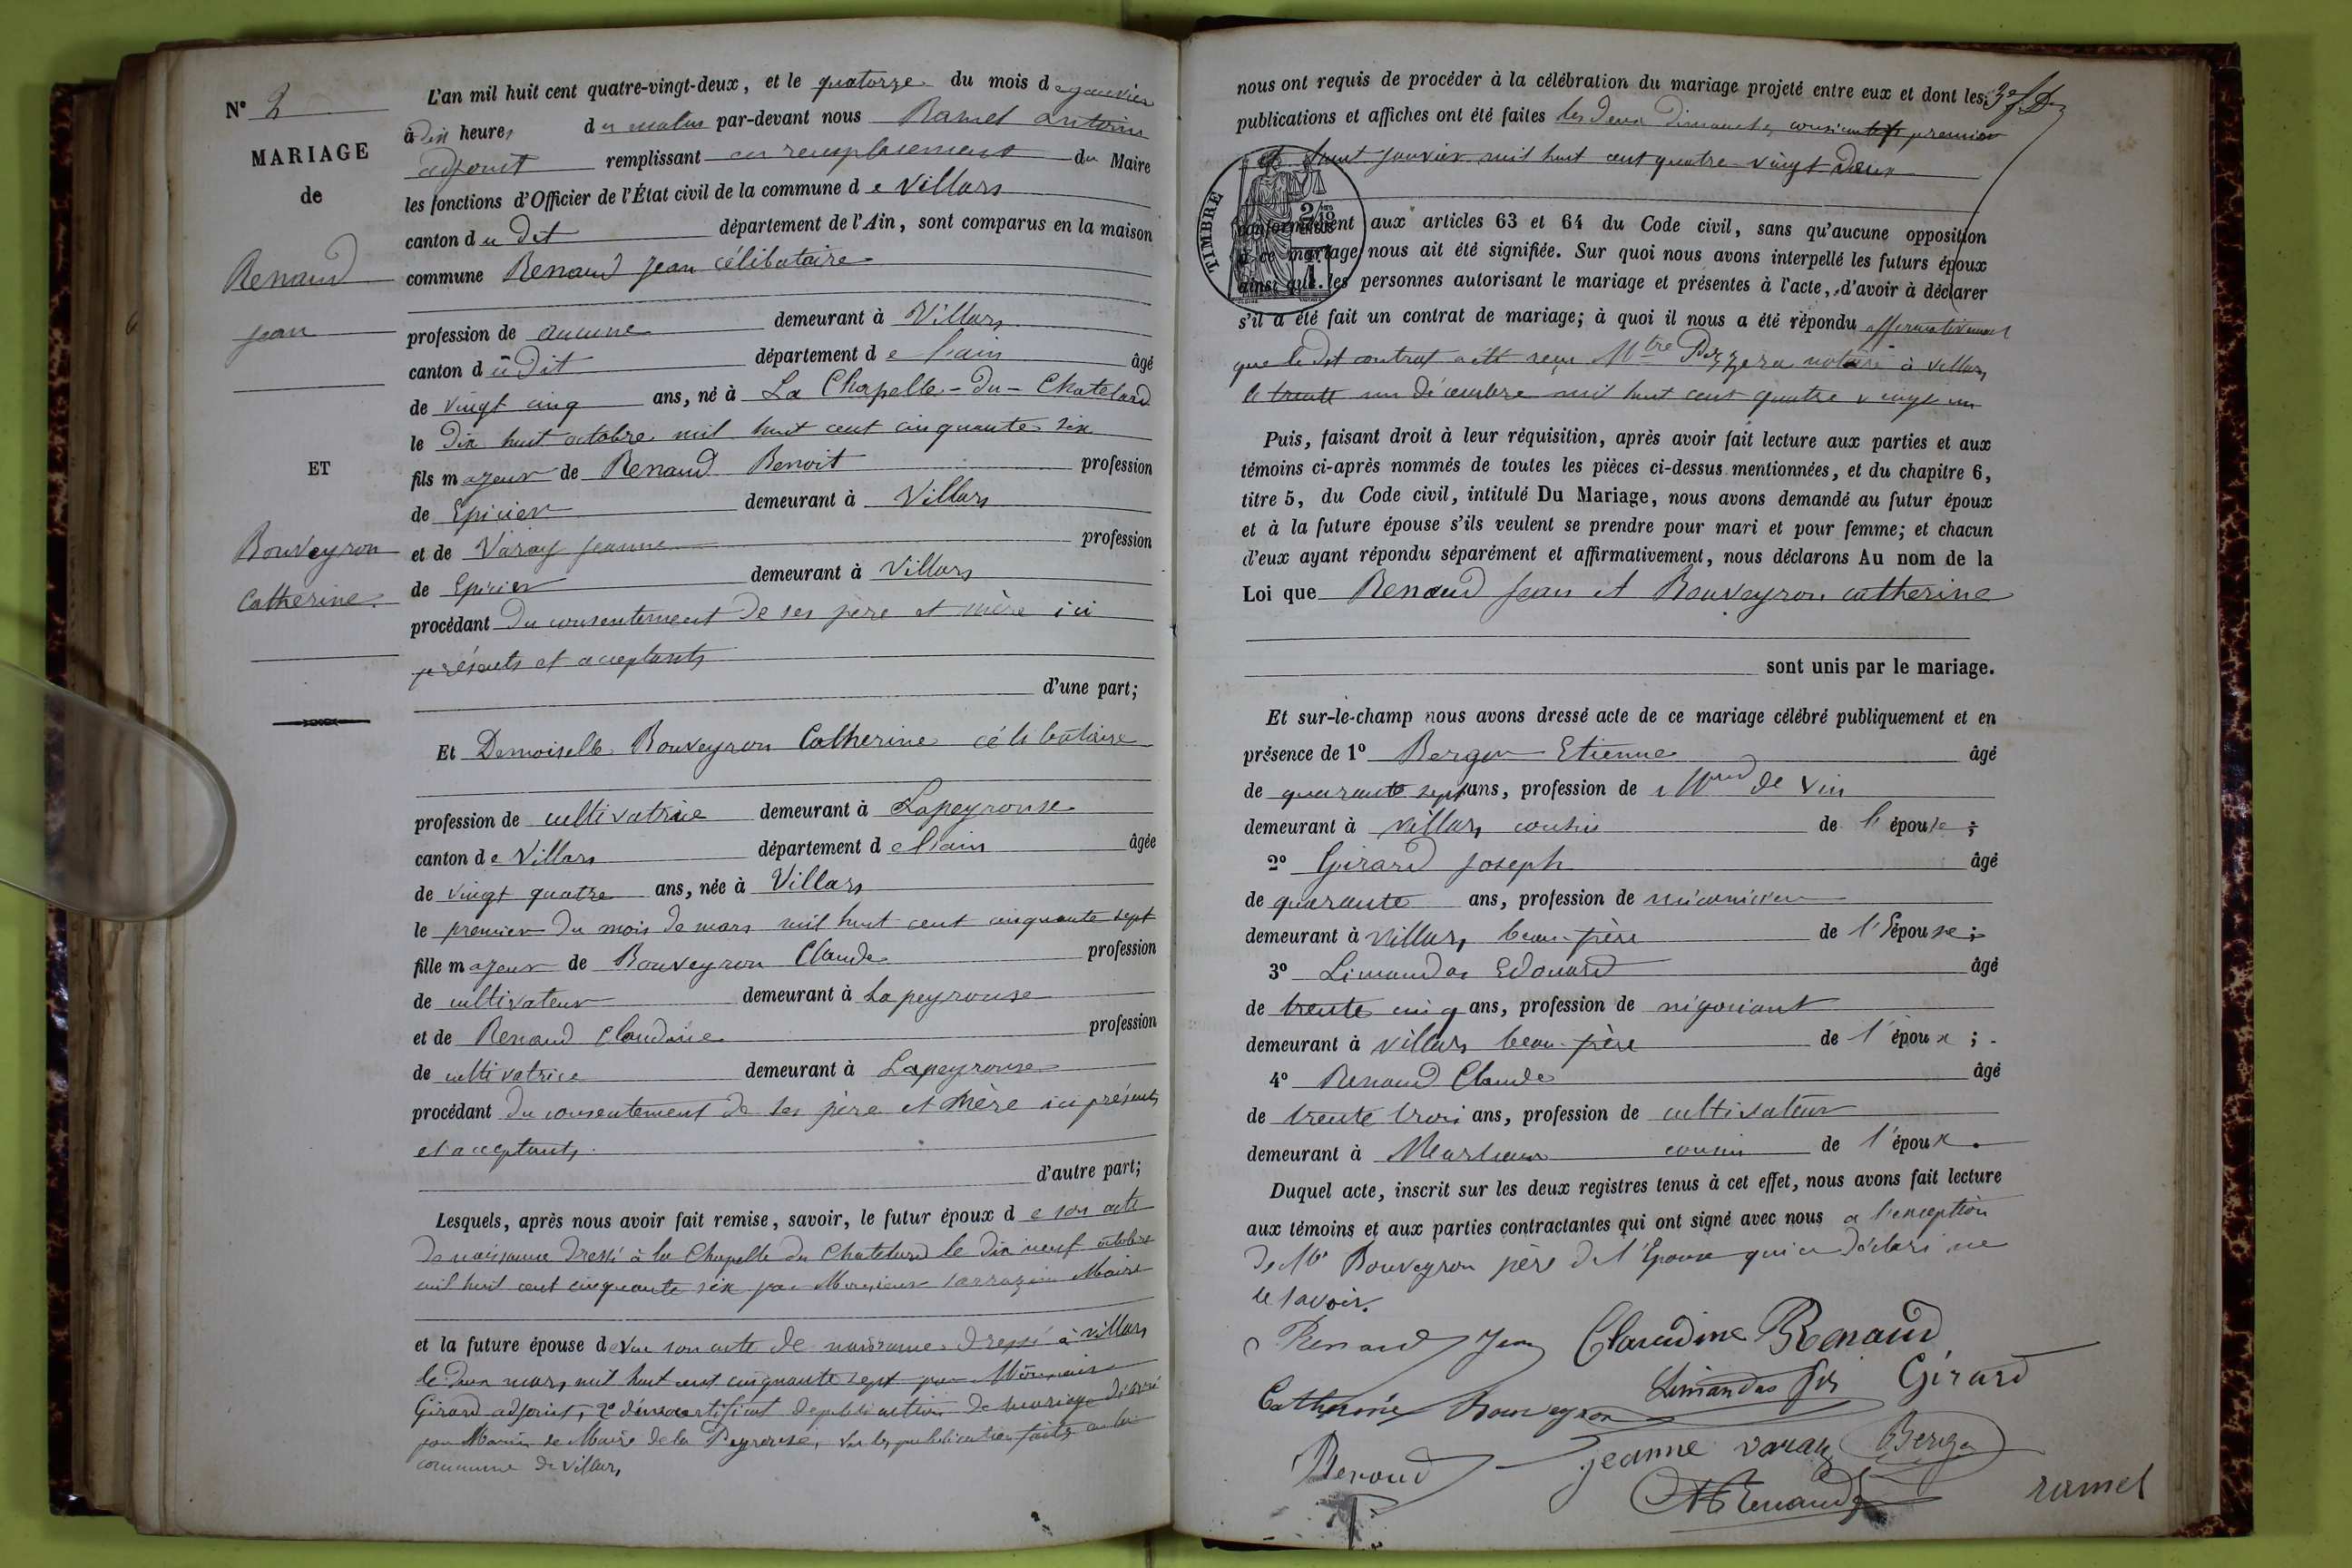 N° 2
MARIAGE
de
Renaud
jean
ET
Bouveyron
Catherine
L'an mil huit cent quatre-vingt-deux, et le quatorze du mois de janvier
à dix heures du matin par-devant nous Ramel antoine
adjoint remplissant en remplacement du Maire
les fonctions d'Officier de l'État civil de la commune de Villars
canton du dit département de l'Ain, sont comparus en la maison
commune Renaud jean célibataire
profession de aucune demeurant à Villars
canton du dit département de l'ain âgé
de vingt cinq ans, né à La Chapelle-du-Chatelard
le dix huit octobre mil huit cent cinquante six
fils majeur de Renaud Benoit profession
de Epicier demeurant à Villars
et de Varay jeanne profession
de Epicier demeurant à Villars
procédant du consentement de ses père et mère ici
présents et acceptants
d'une part;
Et Demoiselle Bouveyron Catherine célibataire
profession de cultivatrice demeurant à Lapeyrouse
canton de Villars département de l'ain âgée
de vingt quatre ans, née à Villars
le premier du mois de mars mil huit cent cinquante sept
fille majeur de Bouveyron Claude profession
de cultivateur demeurant à Lapeyrouse
et de Renaud Claudine profession
de cultivatrice demeurant à Lapeyrouse
procédant du consentement de ses père et mère ici présents
et acceptants
d'autre part;
Lesquels, après nous avoir fait remise, savoir, le futur époux de son acte
de naissance dressé à la Chapelle du Chatelard le dix neuf octobre
mil huit cent cinquante six par Monsieur Sarrazin Maire
et la future épouse d son acte de naissance dressé à villars
le deux mars mil huit cent cinquante sept par
Girard adjoint, 2° certificat de publication de mariage délivré
par le Maire de la Peyrouse, Vu les publications faites en la
commune de villars
nous ont requis de procéder à la célébration du mariage projeté entre eux et dont les
publications et affiches ont été faites les deux dimanches premier
et huit janvier mil huit cent quatre vingt deux
TIMBRE
conformément aux articles 63 et 64 du Code civil, sans qu'aucune opposition
à ce mariage nous ait été signifiée. Sur quoi nous avons interpellé les futurs époux
ainsi que les personnes autorisant le mariage et présentes à l'acte, d'avoir à déclarer
s'il a été fait un contrat de mariage; à quoi il nous a été répondu affirmativement
que le dit contrat a été reçu Mtre notaire à villars
le trente un décembre mil huit cent quatre vingt un
Puis, faisant droit à leur réquisition, après avoir fait lecture aux parties et aux
témoins ci-après nommés de toutes les pièces ci-dessus mentionnées, et du chapitre 6,
titre 5, du Code civil, intitulé Du Mariage, nous avons demandé au futur époux
et à la future épouse s'ils veulent se prendre pour mari et pour femme; et chacun
d'eux ayant répondu séparément et affirmativement, nous déclarons Au nom de la
Loi que Renaud jean et Bouveyron catherine
sont unis par le mariage.
Et sur-le-champ nous avons dressé acte de ce mariage célébré publiquement et en
présence de 1° Berger Etienne âgé
de quarante sept ans, profession de Md de vin
demeurant à villars cousin de l'épouse;
2° Girard joseph âgé
de quarante ans, profession de mécanicien
demeurant à villars beau-frère de l'épouse;
3° Limandas Edouard âgé
de trente cinq ans, profession de négociant
demeurant à villars beau-frère de l'époux;
4° Renaud Claude âgé
de trente trois ans, profession de cultivateur
demeurant à Marlieux cousin de l'époux.
Duquel acte, inscrit sur les deux registres tenus à cet effet, nous avons fait lecture
aux témoins et aux parties contractantes qui ont signé avec nous a l'exception
de Mr Bouveyron père de l'Epouse qui a déclaré ne
le savoir.
Renaud jean Claudine Renaud
Catherine Bouveyron Limandas fils Girard
Renaud jeanne varay Berger
Renaud ramel